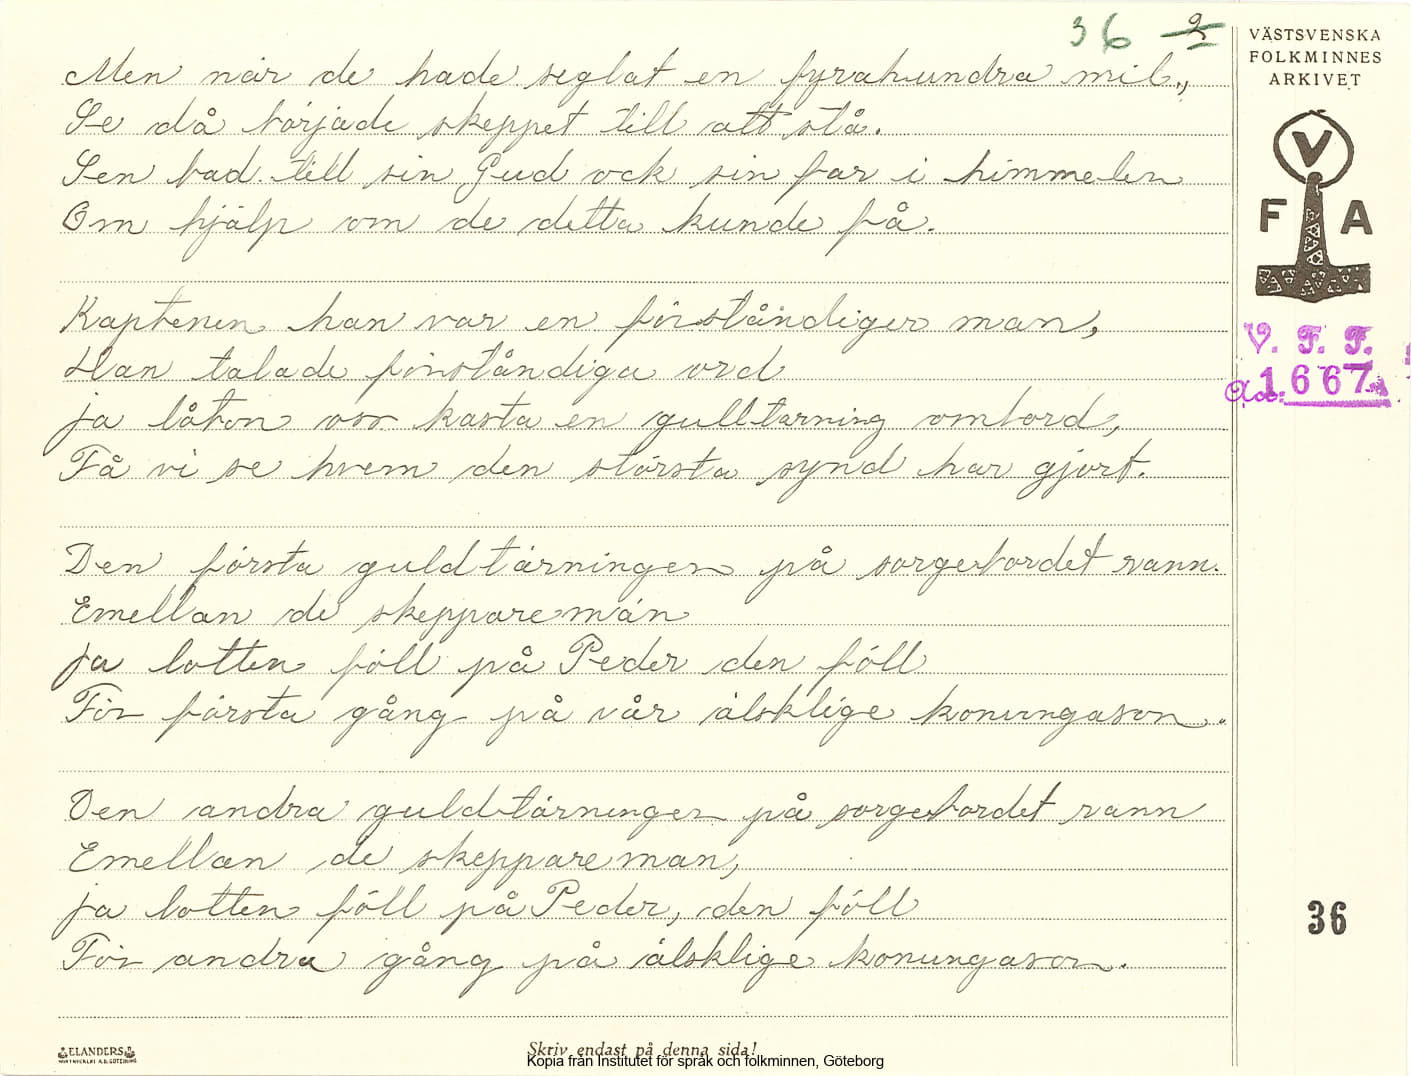 36 2
VÄSTSVENSKA
FOLKMINNES
ARKIVET
V
F A
V. F. F.
Acc. 1667
36
Men när de hade seglat en fyrahundra mil,
Se då började skeppet till att stå.
Sen bad till sin Gud ock sin far i himmelen
Om hjälp om de detta kunde få.
Kaptenen han var en förståndiger man,
Han talade förståndiga ord
ja låton oss kasta en gulltärning ombord,
Få vi se hvem den största synd har gjort.
Den första guldtärningen på sorgebordet rann.
Emellan de skepparemän
ja lotten föll på Peder den föll
För första gång på vår älsklige konungason.
Den andra guldtärningen på sorgebordet rann
Emellan de skeppareman,
ja lotten föll på Peder, den föll
För andra gång på älsklige konungason.
ELANDERS
Skriv endast på denna sida!
Kopia från Institutet för språk och folkminnen, Göteborg